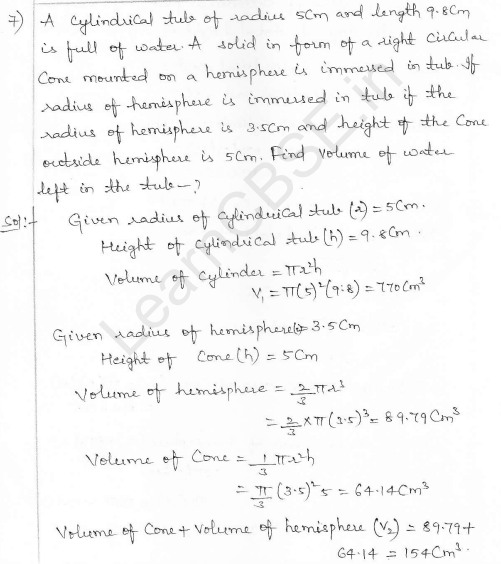 7) A cylindrical tub of radius 5cm and length 9.8cm
is full of water. A solid in form of a right circular
Cone mounted on a hemisphere is immersed in tub. If
radius of hemisphere is immersed in tub if the
radius of hemisphere is 3.5cm and height of the Cone
outside hemisphere is 5cm. Find volume of water
left in the tub-?
Sol:- Given radius of cylindrical tub (r) = 5cm.
Height of cylindrical tub (h) = 9.8cm.
Volume of cylinder = πr²h
V₁ = π(5)²(9.8) = 770cm³
Given radius of hemisphere(r) = 3.5cm
Height of Cone (h) = 5cm
Volume of hemisphere = 2/3 πr³
= 2/3 × π(3.5)³ = 89.79cm³
Volume of Cone = 1/3 πr²h
= π/3 (3.5)² 5 = 64.14cm³
Volume of Cone + Volume of hemisphere (V₂) = 89.79 +
64.14 = 154cm³.
LearnCBSE.in